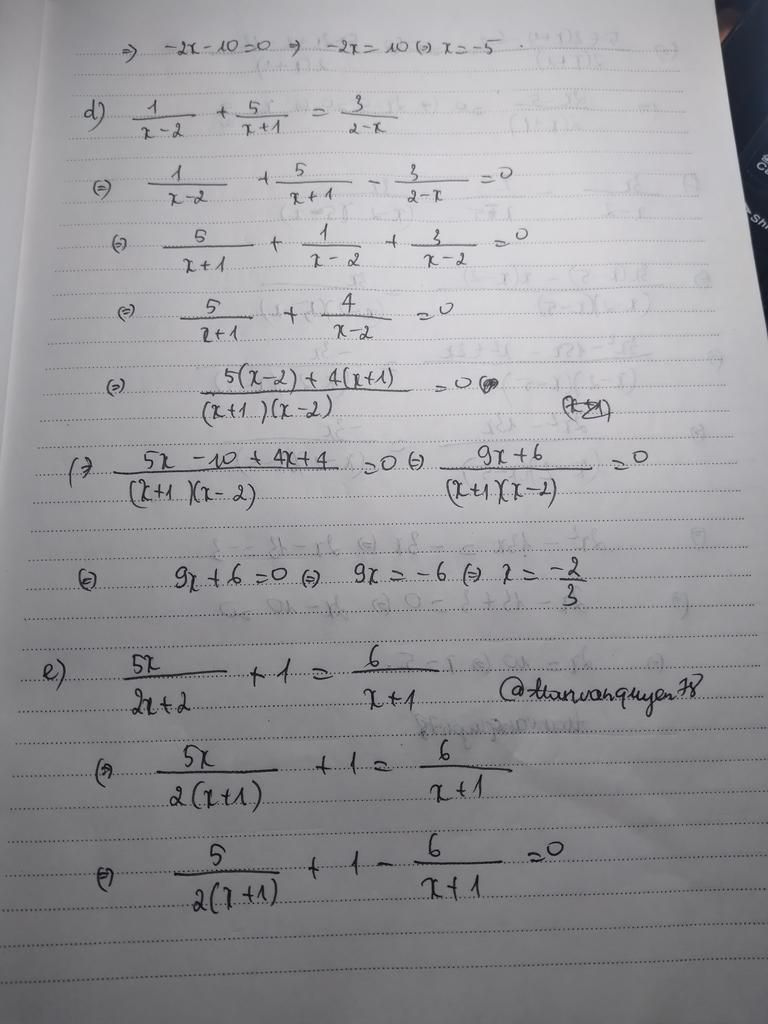 => -2x - 10 = 0 => -2x = 10 (=) x = -5 .
d) 1/(x-2) + 5/(x+1) = 3/(2-x)
(=) 1/(x-2) + 5/(x+1) - 3/(2-x) = 0
(=) 5/(x+1) + 1/(x-2) + 3/(x-2) = 0
(=) 5/(x+1) + 4/(x-2) = 0
(=) (5(x-2) + 4(x+1))/((x+1)(x-2)) = 0
(=) (5x - 10 + 4x + 4)/((x+1)(x-2)) = 0 (=) (9x+6)/((x+1)(x-2)) = 0
(=) 9x + 6 = 0 (=) 9x = -6 (=) x = -2/3
e) 5x/(2x+2) + 1 = 6/(x+1)
(=) 5x/(2(x+1)) + 1 = 6/(x+1)
(=) 5/(2(x+1)) + 1 - 6/(x+1) = 0